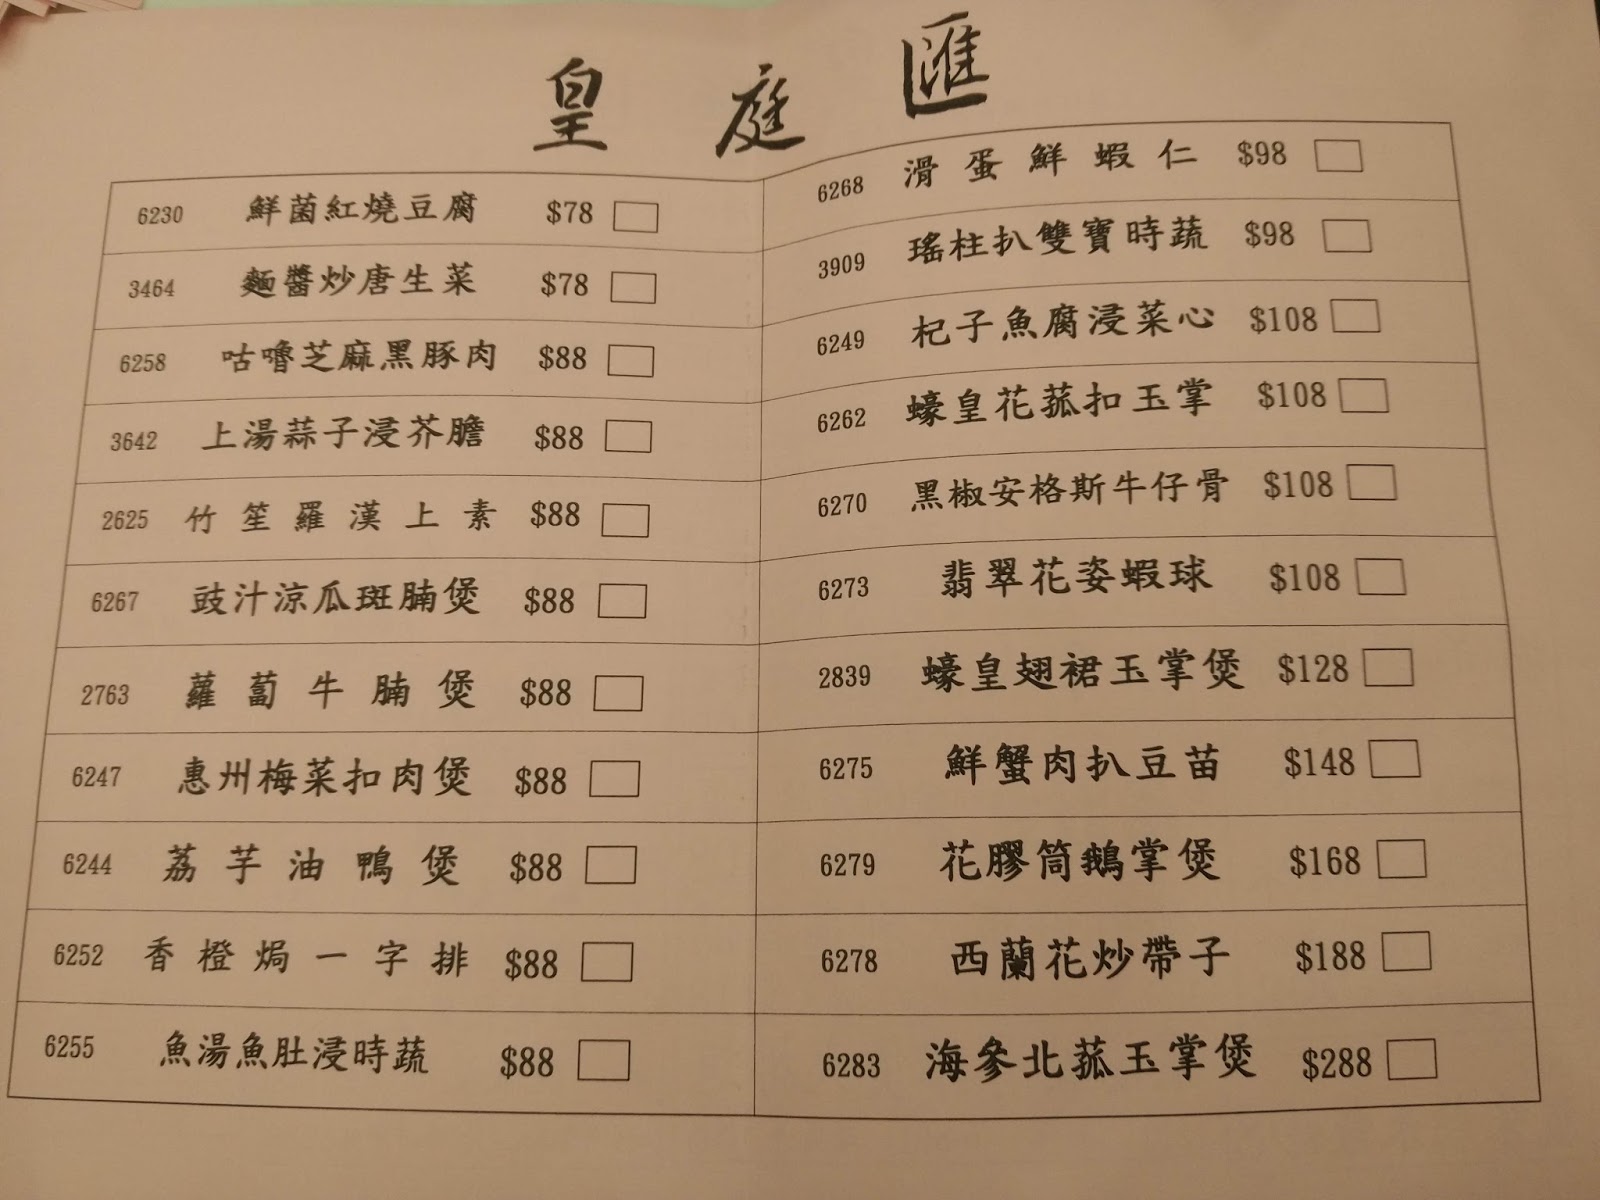 皇庭匯
6230 鮮菌紅燒豆腐 $78
3464 麵醬炒唐生菜 $78
6258 咕嚕芝麻黑豚肉 $88
3642 上湯蒜子浸芥膽 $88
2625 竹笙羅漢上素 $88
6267 豉汁涼瓜斑腩煲 $88
2763 蘿蔔牛腩煲 $88
6247 惠州梅菜扣肉煲 $88
6244 荔芋油鴨煲 $88
6252 香橙焗一字排 $88
6255 魚湯魚肚浸時蔬 $88
6268 滑蛋鮮蝦仁 $98
3909 瑤柱扒雙寶時蔬 $98
6249 杞子魚腐浸菜心 $108
6262 蠔皇花菰扣玉掌 $108
6270 黑椒安格斯牛仔骨 $108
6273 翡翠花姿蝦球 $108
2839 蠔皇翅裙玉掌煲 $128
6275 鮮蟹肉扒豆苗 $148
6279 花膠筒鵝掌煲 $168
6278 西蘭花炒帶子 $188
6283 海參北菰玉掌煲 $288